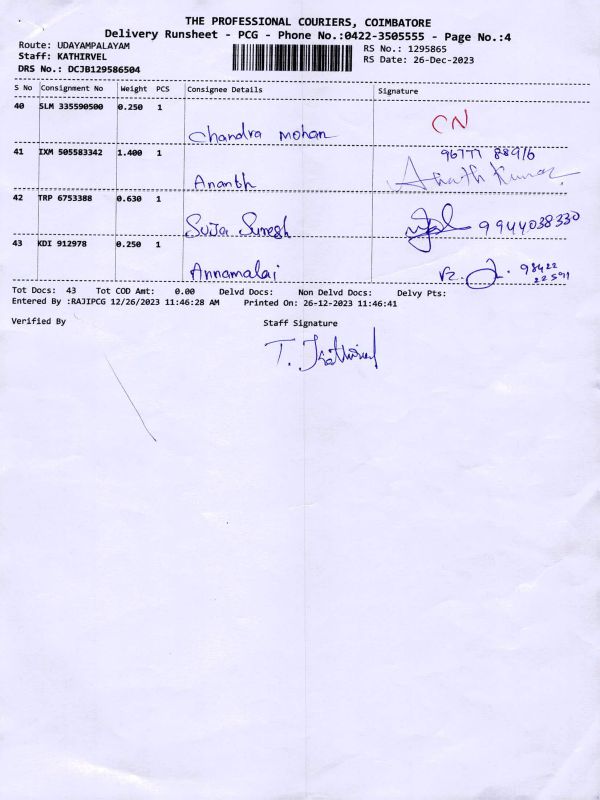 THE PROFESSIONAL COURIERS, COIMBATORE
Delivery Runsheet - PCG - Phone No.:0422-3505555 - Page No.:4
Route: UDAYAMPALAYAM
RS No.: 1295865
Staff: KATHIRVEL
RS Date: 26-Dec-2023
DRS No.: DCJB129586504
S No Consignment No Weight PCS Consignee Details Signature
40 SLM 335590500 0.250 1
Chandra Mohan CN
41 IXM 505583342 1.400 1
96777 88916
Ananth Ananth Kumar
42 TRP 6753388 0.630 1
Suja Suresh 9944038330
43 KDI 912978 0.250 1
Annamalai 98422
22591
Tot Docs: 43 Tot COD Amt: 0.00 Delvd Docs: Non Delvd Docs: Delvy Pts:
Entered By :RAJIPCG 12/26/2023 11:46:28 AM Printed On: 26-12-2023 11:46:41
Verified By Staff Signature
T. Kathirvel